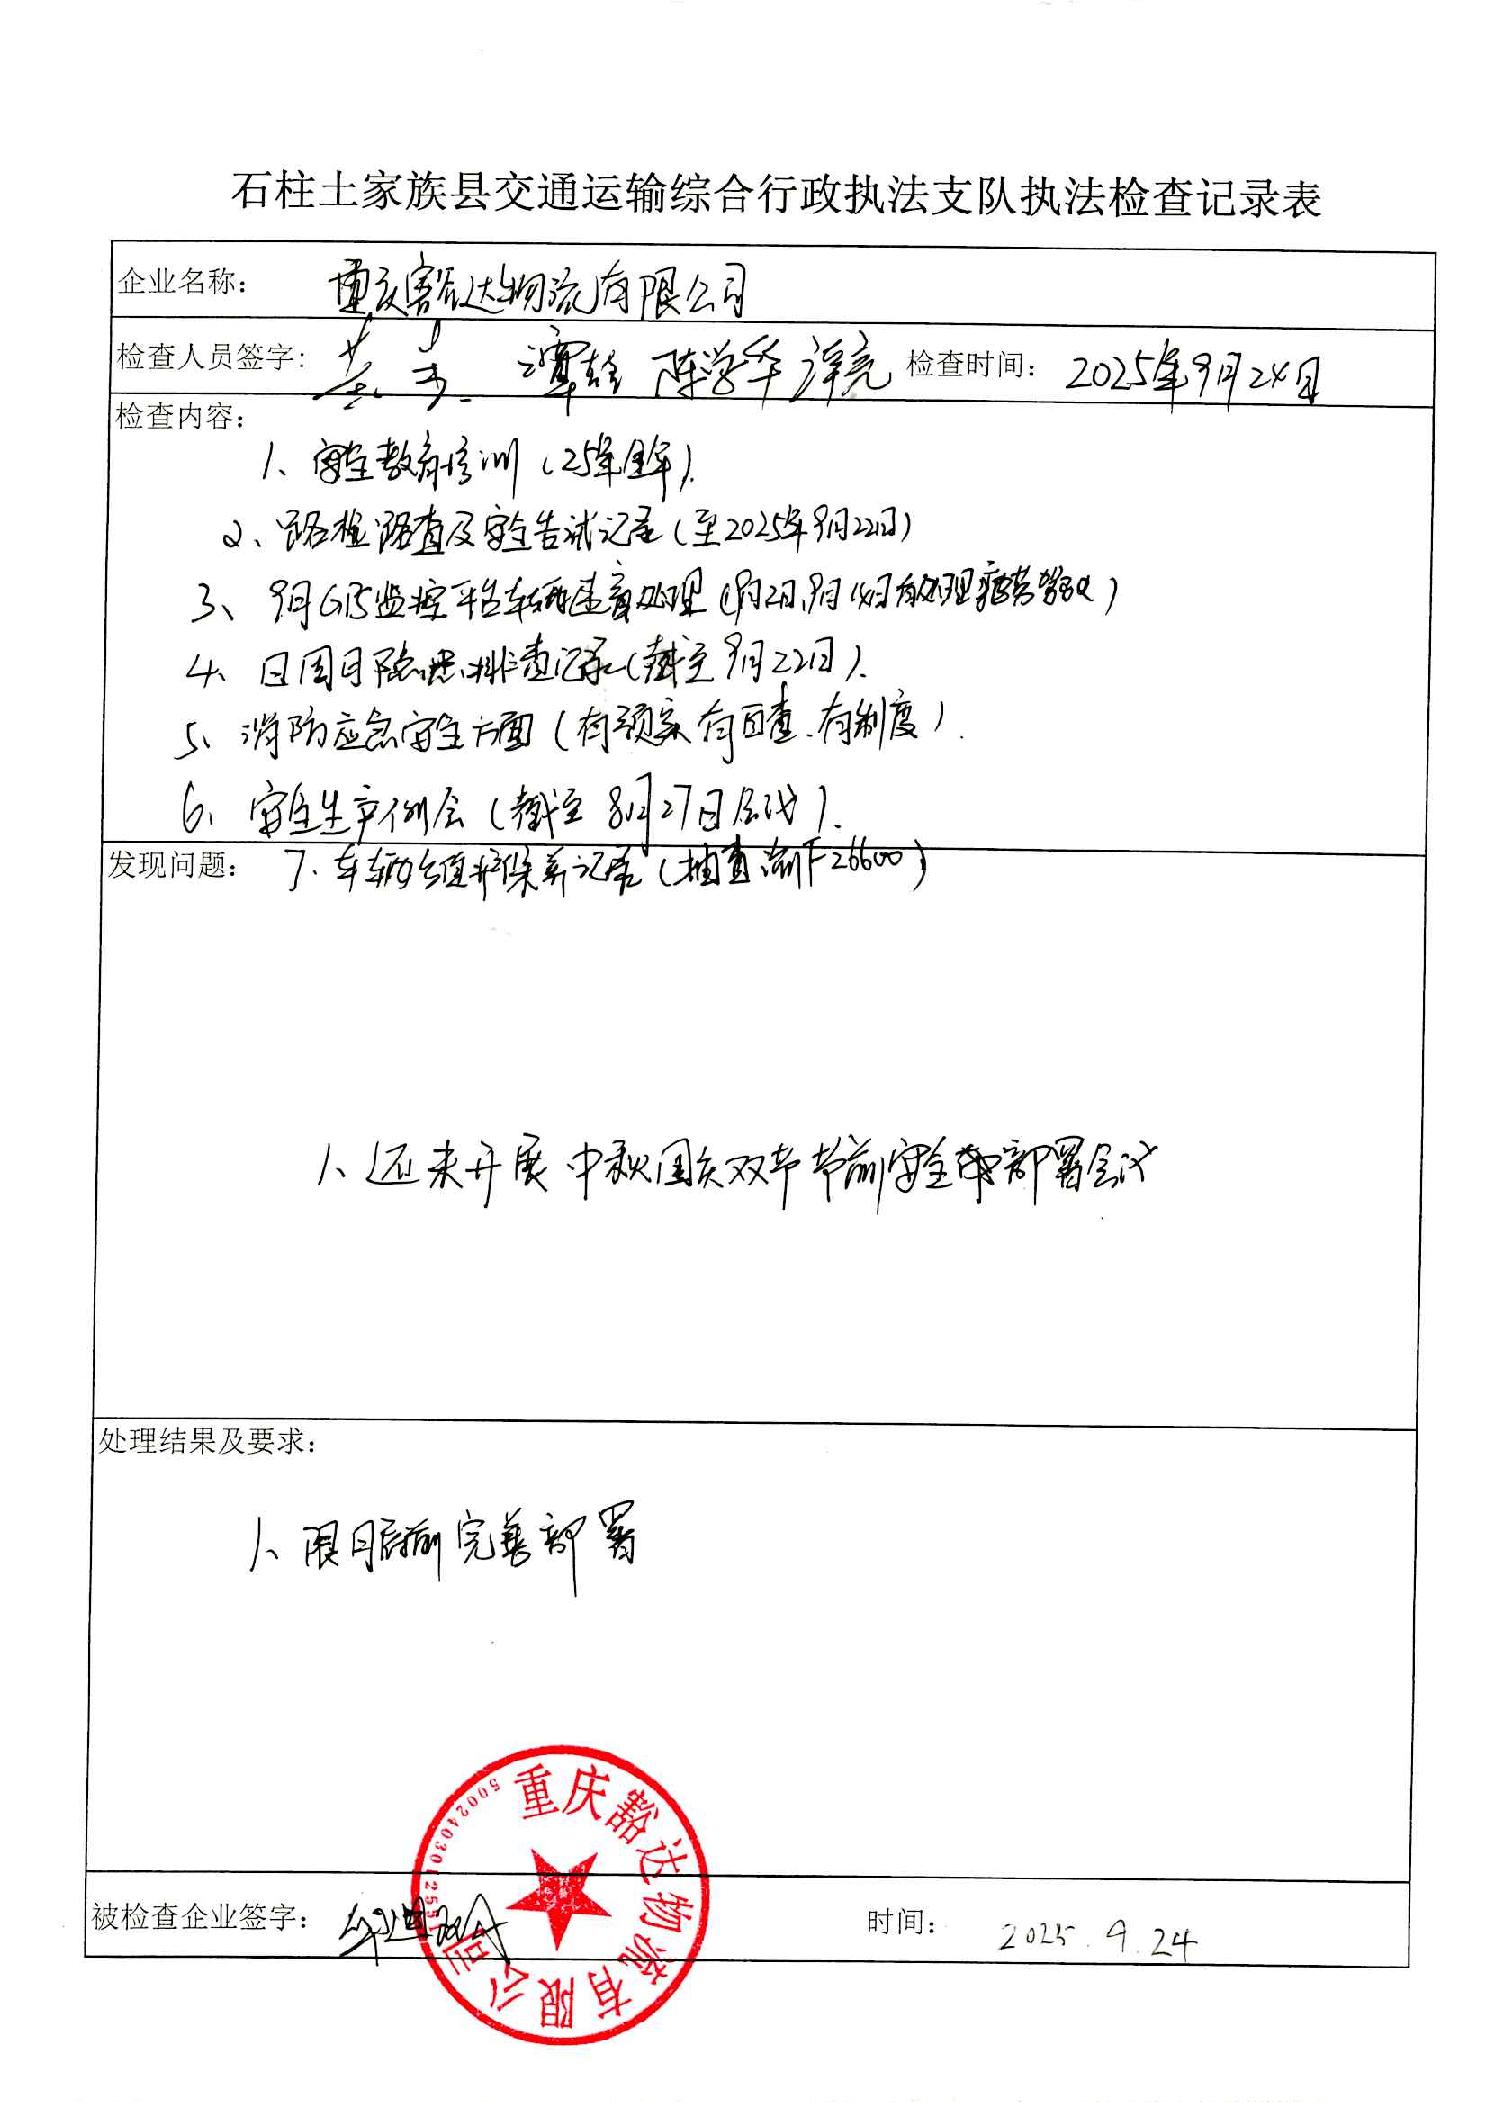 石柱土家族县交通运输综合行政执法支队执法检查记录表
企业名称： 重庆豁达物流有限公司
检查人员签字： 谭雄 陈学华 谭亮 检查时间： 2025年9月24日
检查内容：
1、安全教育培训（25年全年）.
2、路检路查及安全告诫记录（至2025年9月22日）
3、9月GPS监控平台车辆违章处理（9月2日、9月14日有处理疲劳驾驶）
4、日周月隐患排查记录（截至9月22日）.
5、消防应急安全方面（有预案、有自查、有制度）.
6、安全生产例会（截至8月27日会议）.
发现问题： 7、车辆维护保养记录（抽查渝F26600）
1、还未开展中秋国庆双节节前安全部署会议
处理结果及要求：
1、限月底前完善部署
重庆豁达物流有限公司
被检查企业签字： 时间： 2025.9.24